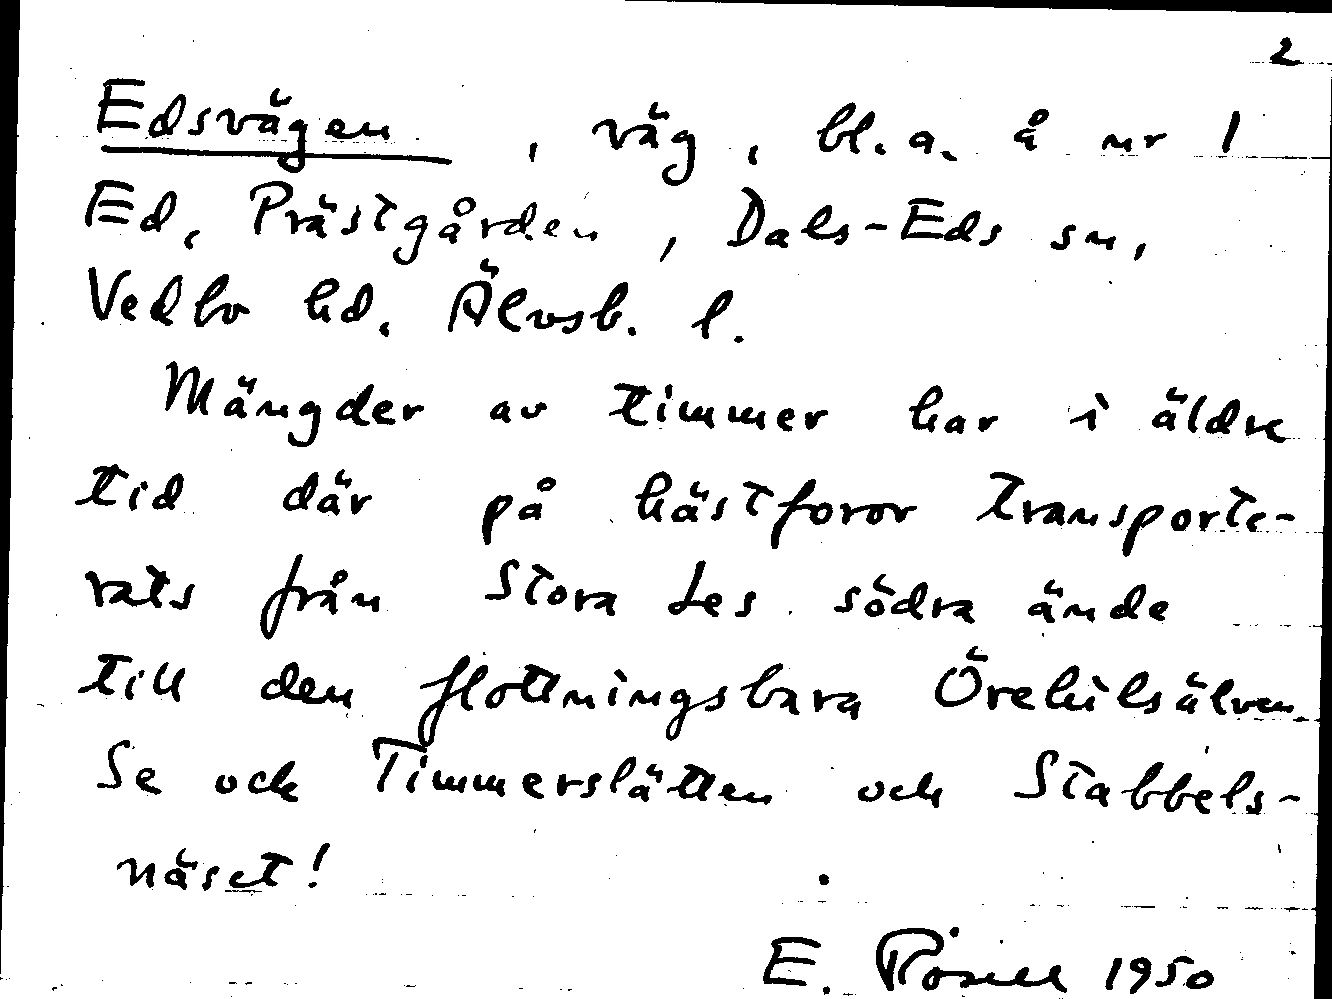 2
Edsvägen, väg, bl.a. å nr 1
Ed, Prästgården, Dals-Eds sn,
Vedbo hd. Älvsb. l.
Mängder av timmer har i äldre
tid där på hästforor transporte-
rats från Stora Les södra ände
till den flottningsbara Örekilsälven
Se och Timmerslätten och Stabbels-
näset!
E. Rosell 1950